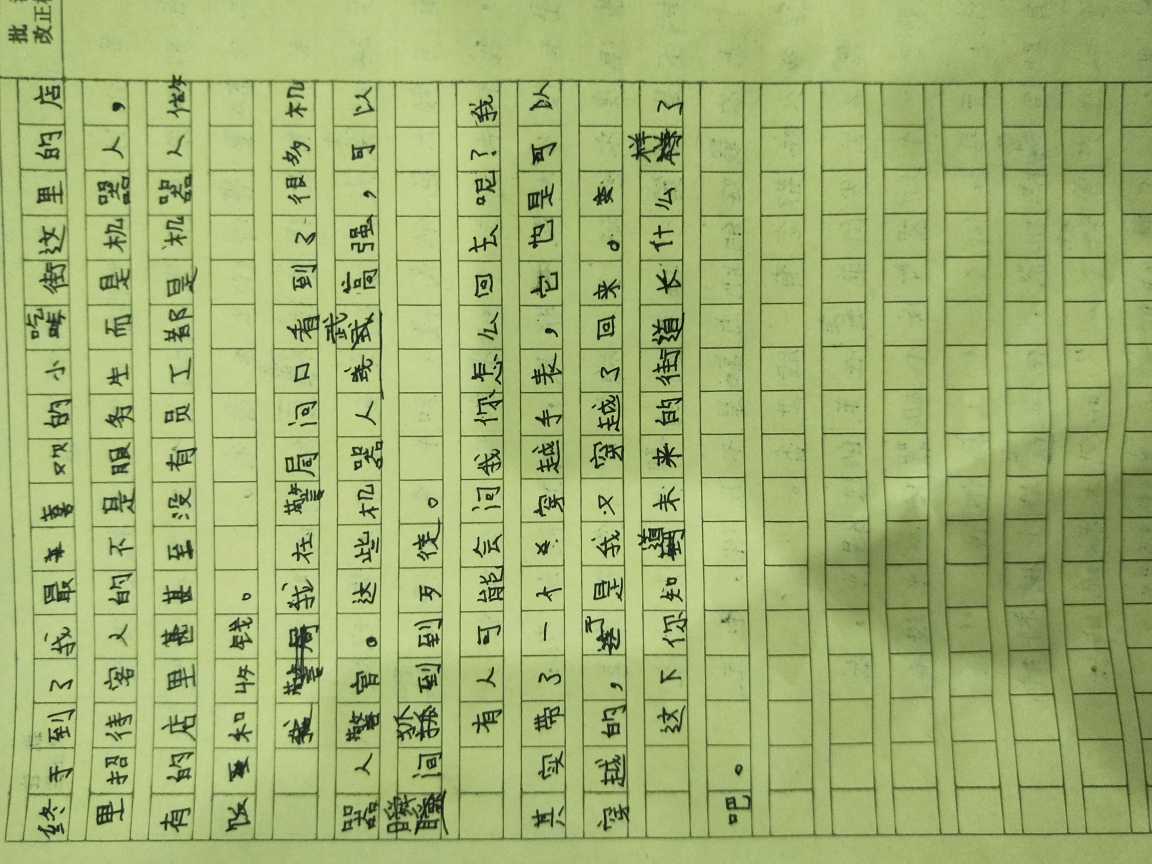 批
改正
终于到了我最喜欢的小吃街这里的店
里招待客人的不是服务生而是机器人，
有的店里甚至没有员工都是机器人做
饭和收钱。
我在警局问口看到了很多机
器人警官。这些机器人武高强，可以
瞬间抓到到歹徒。
有人可能会问我你怎么回去呢？我
其实带了一个穿越手表，它也是可以
穿越的，于是我又穿越了回来。
这下你知道未来的街道长什么样了
吧。